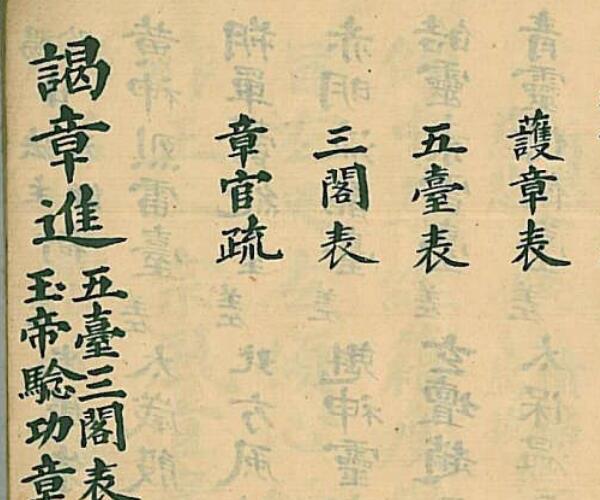 護章表
五臺表
三閣表
章官疏
謁章進
五臺三閣表
玉帝驗功章